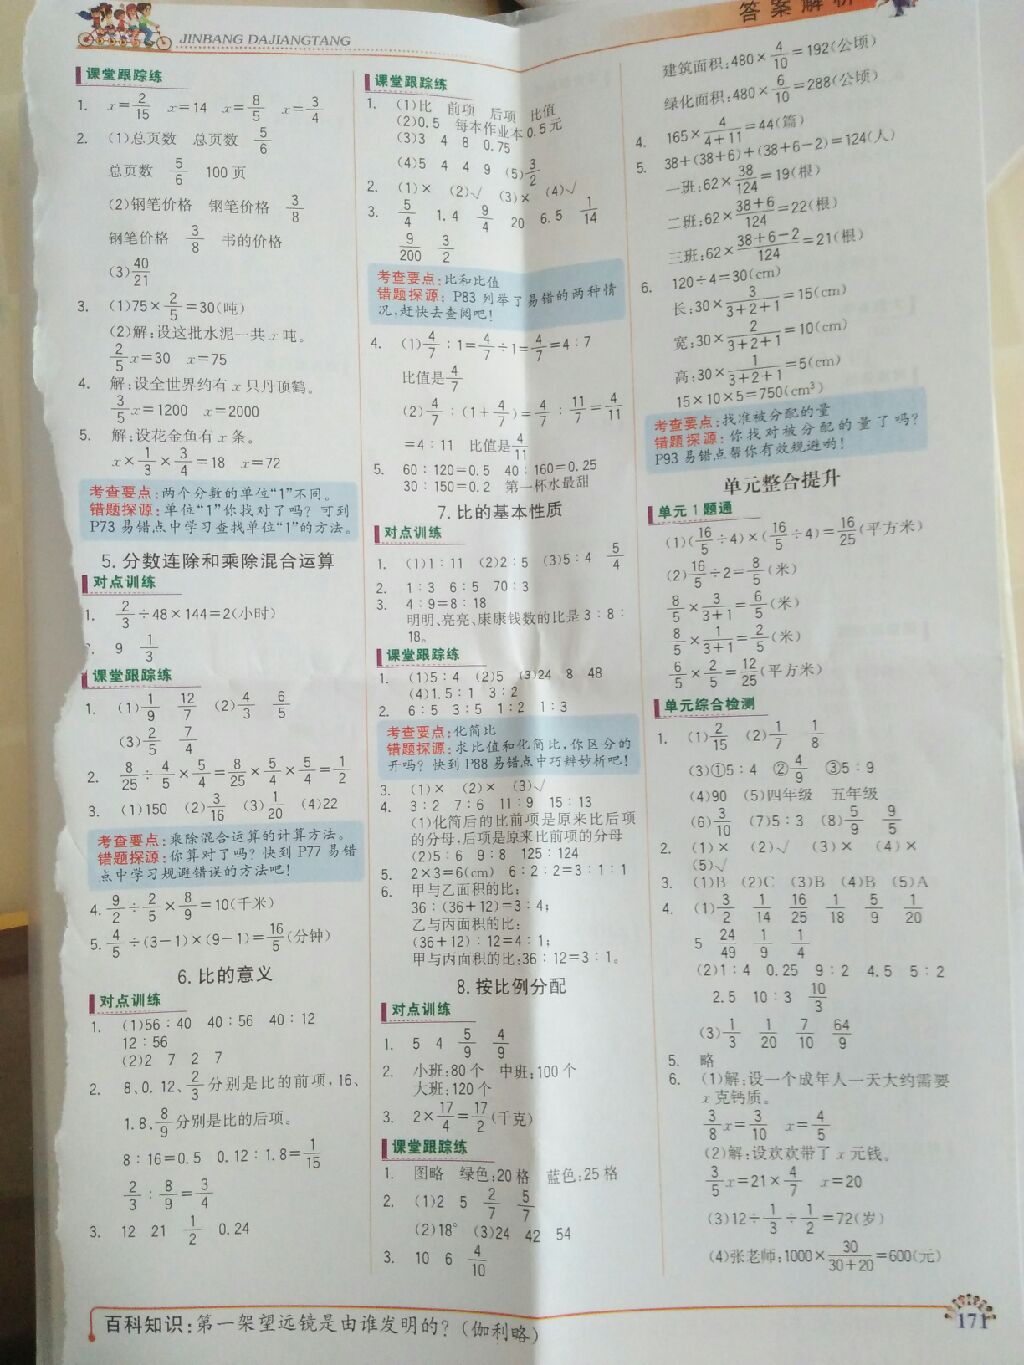 JINBANG DAJIANGTANG
答案解析
课堂跟踪练
1. x=2/15 x=14 x=8/5 x=3/4
2. (1)总页数 总页数 5/6
总页数 5/6 100页
(2)钢笔价格 钢笔价格 3/8
钢笔价格 3/8 书的价格
(3)40/21
3. (1)75×2/5=30(吨)
(2)解:设这批水泥一共x吨。
2/5x=30 x=75
4. 解:设全世界约有x只丹顶鹤。
3/5x=1200 x=2000
5. 解:设花金鱼有x条。
x×1/3×3/4=18 x=72
考查要点:两个分数的单位“1”不同。
错题探源:单位“1”你找对了吗?可到
P73易错点中学习查找单位“1”的方法。
5. 分数连除和乘除混合运算
对点训练
1. 2/3÷48×144=2(小时)
9 1/3
课堂跟踪练
1. (1)1/9 12/7 (2)4/3 6/5
(3)2/5 7/4
2. 8/25÷4/5×5/4=8/25×5/4×5/4=1/2
3. (1)150 (2)3/16 (3)1/20 (4)22
考查要点:乘除混合运算的计算方法。
错题探源:你算对了吗?快到P77易错
点中学习规避错误的方法吧!
4. 9/2÷2/5×8/9=10(千米)
5. 4/5÷(3-1)×(9-1)=16/5(分钟)
6. 比的意义
对点训练
1. (1)56:40 40:56 40:12
12:56
(2)2 7 2 7
2. 8、0.12、2/3分别是比的前项,16、
1.8、8/9分别是比的后项。
8:16=0.5 0.12:1.8=1/15
2/3:8/9=3/4
3. 12 21 1/2 0.24
课堂跟踪练
1. (1)比 前项 后项 比值
(2)0.5 每本作业本0.5元
(3)3 4 8 0.75
(4)5 4 4 9 (5)3/2
2. (1)× (2)√ (3)× (4)√
3. 5/4 1.4 9/4 20 6.5 1/14
9/200 3/2
考查要点:比和比值
错题探源:P83列举了易错的两种情
况,赶快去查阅吧!
4. (1)4/7:1=4/7÷1=4/7=4:7
比值是4/7
(2)4/7:(1+4/7)=4/7:11/7=4/11
=4:11 比值是4/11
5. 60:120=0.5 40:160=0.25
30:150=0.2 第一杯水最甜
7. 比的基本性质
对点训练
1. (1)1:11 (2)2:5 (3)5:4 5/4
2. 1:3 6:5 70:3
3. 4:9=8:18
明明、亮亮、康康钱数的比是3:8:
18。
课堂跟踪练
1. (1)5:4 (2)5 (3)24 8 48
(4)1.5:1 3:2
2. 6:5 3:5 1:2 1:3
考查要点:化简比
错题探源:求比值和化简比,你区分的
开吗?快到P88易错点中巧辨妙析吧!
3. (1)× (2)× (3)√
4. 3:2 7:6 11:9 15:13
(1)化简后的比前项是原来比后项
的分母,后项是原来比前项的分母
(2)5:6 9:8 125:124
5. 2×3=6(cm) 6:2:2=3:1:1
6. 甲与乙面积的比:
36:(36+12)=3:4;
乙与丙面积的比:
(36+12):12=4:1;
甲与丙面积的比:36:12=3:1。
8. 按比例分配
对点训练
1. 5 4 5/9 4/9
2. 小班:80个 中班:100个
大班:120个
3. 2×17/4=17/2(千克)
课堂跟踪练
1. 图略 绿色:20格 蓝色:25格
2. (1)2 5 2/7 5/7
(2)18° (3)24 42 54
3. 10 6 4/10
建筑面积:480×4/10=192(公顷)
绿化面积:480×6/10=288(公顷)
4. 165×4/4+11=44(篇)
5. 38+(38+6)+(38+6-2)=124(人)
一班:62×38/124=19(根)
二班:62×38+6/124=22(根)
三班:62×38+6-2/124=21(根)
6. 120÷4=30(cm)
长:30×3/3+2+1=15(cm)
宽:30×2/3+2+1=10(cm)
高:30×1/3+2+1=5(cm)
15×10×5=750(cm³)
考查要点:找准被分配的量
错题探源:你找对被分配的量了吗?
P93易错点帮你有效规避哟!
单元整合提升
单元1题通
(1)(16/5÷4)×(16/5÷4)=16/25(平方米)
(2)16/5÷2=8/5(米)
8/5×3/3+1=6/5(米)
8/5×1/3+1=2/5(米)
6/5×2/5=12/25(平方米)
单元综合检测
1. (1)2/15 (2)1/7 1/8
(3)①5:4 ②4/9 ③5:9
(4)90 (5)四年级 五年级
(6)3/10 (7)5:3 (8)5/9 9/5
2. (1)× (2)√ (3)× (4)×
(5)√
3. (1)B (2)C (3)B (4)B (5)A
4. (1)3/2 1/14 16/25 1/18 5/9 1/20
5 24/49 1/9 1/4
(2)1:4 0.25 9:2 4.5 5:2
2.5 10:3 10/3
(3)1/3 1/20 7/10 64/9
5. 略
6. (1)解:设一个成年人一天大约需要
x克钙质。
3/8x=3/10 x=4/5
(2)解:设欢欢带了x元钱。
3/5x=21×4/7 x=20
(3)12÷1/3÷1/2=72(岁)
(4)张老师:1000×30/30+20=600(元)
百科知识:第一架望远镜是由谁发明的?(伽利略)
171